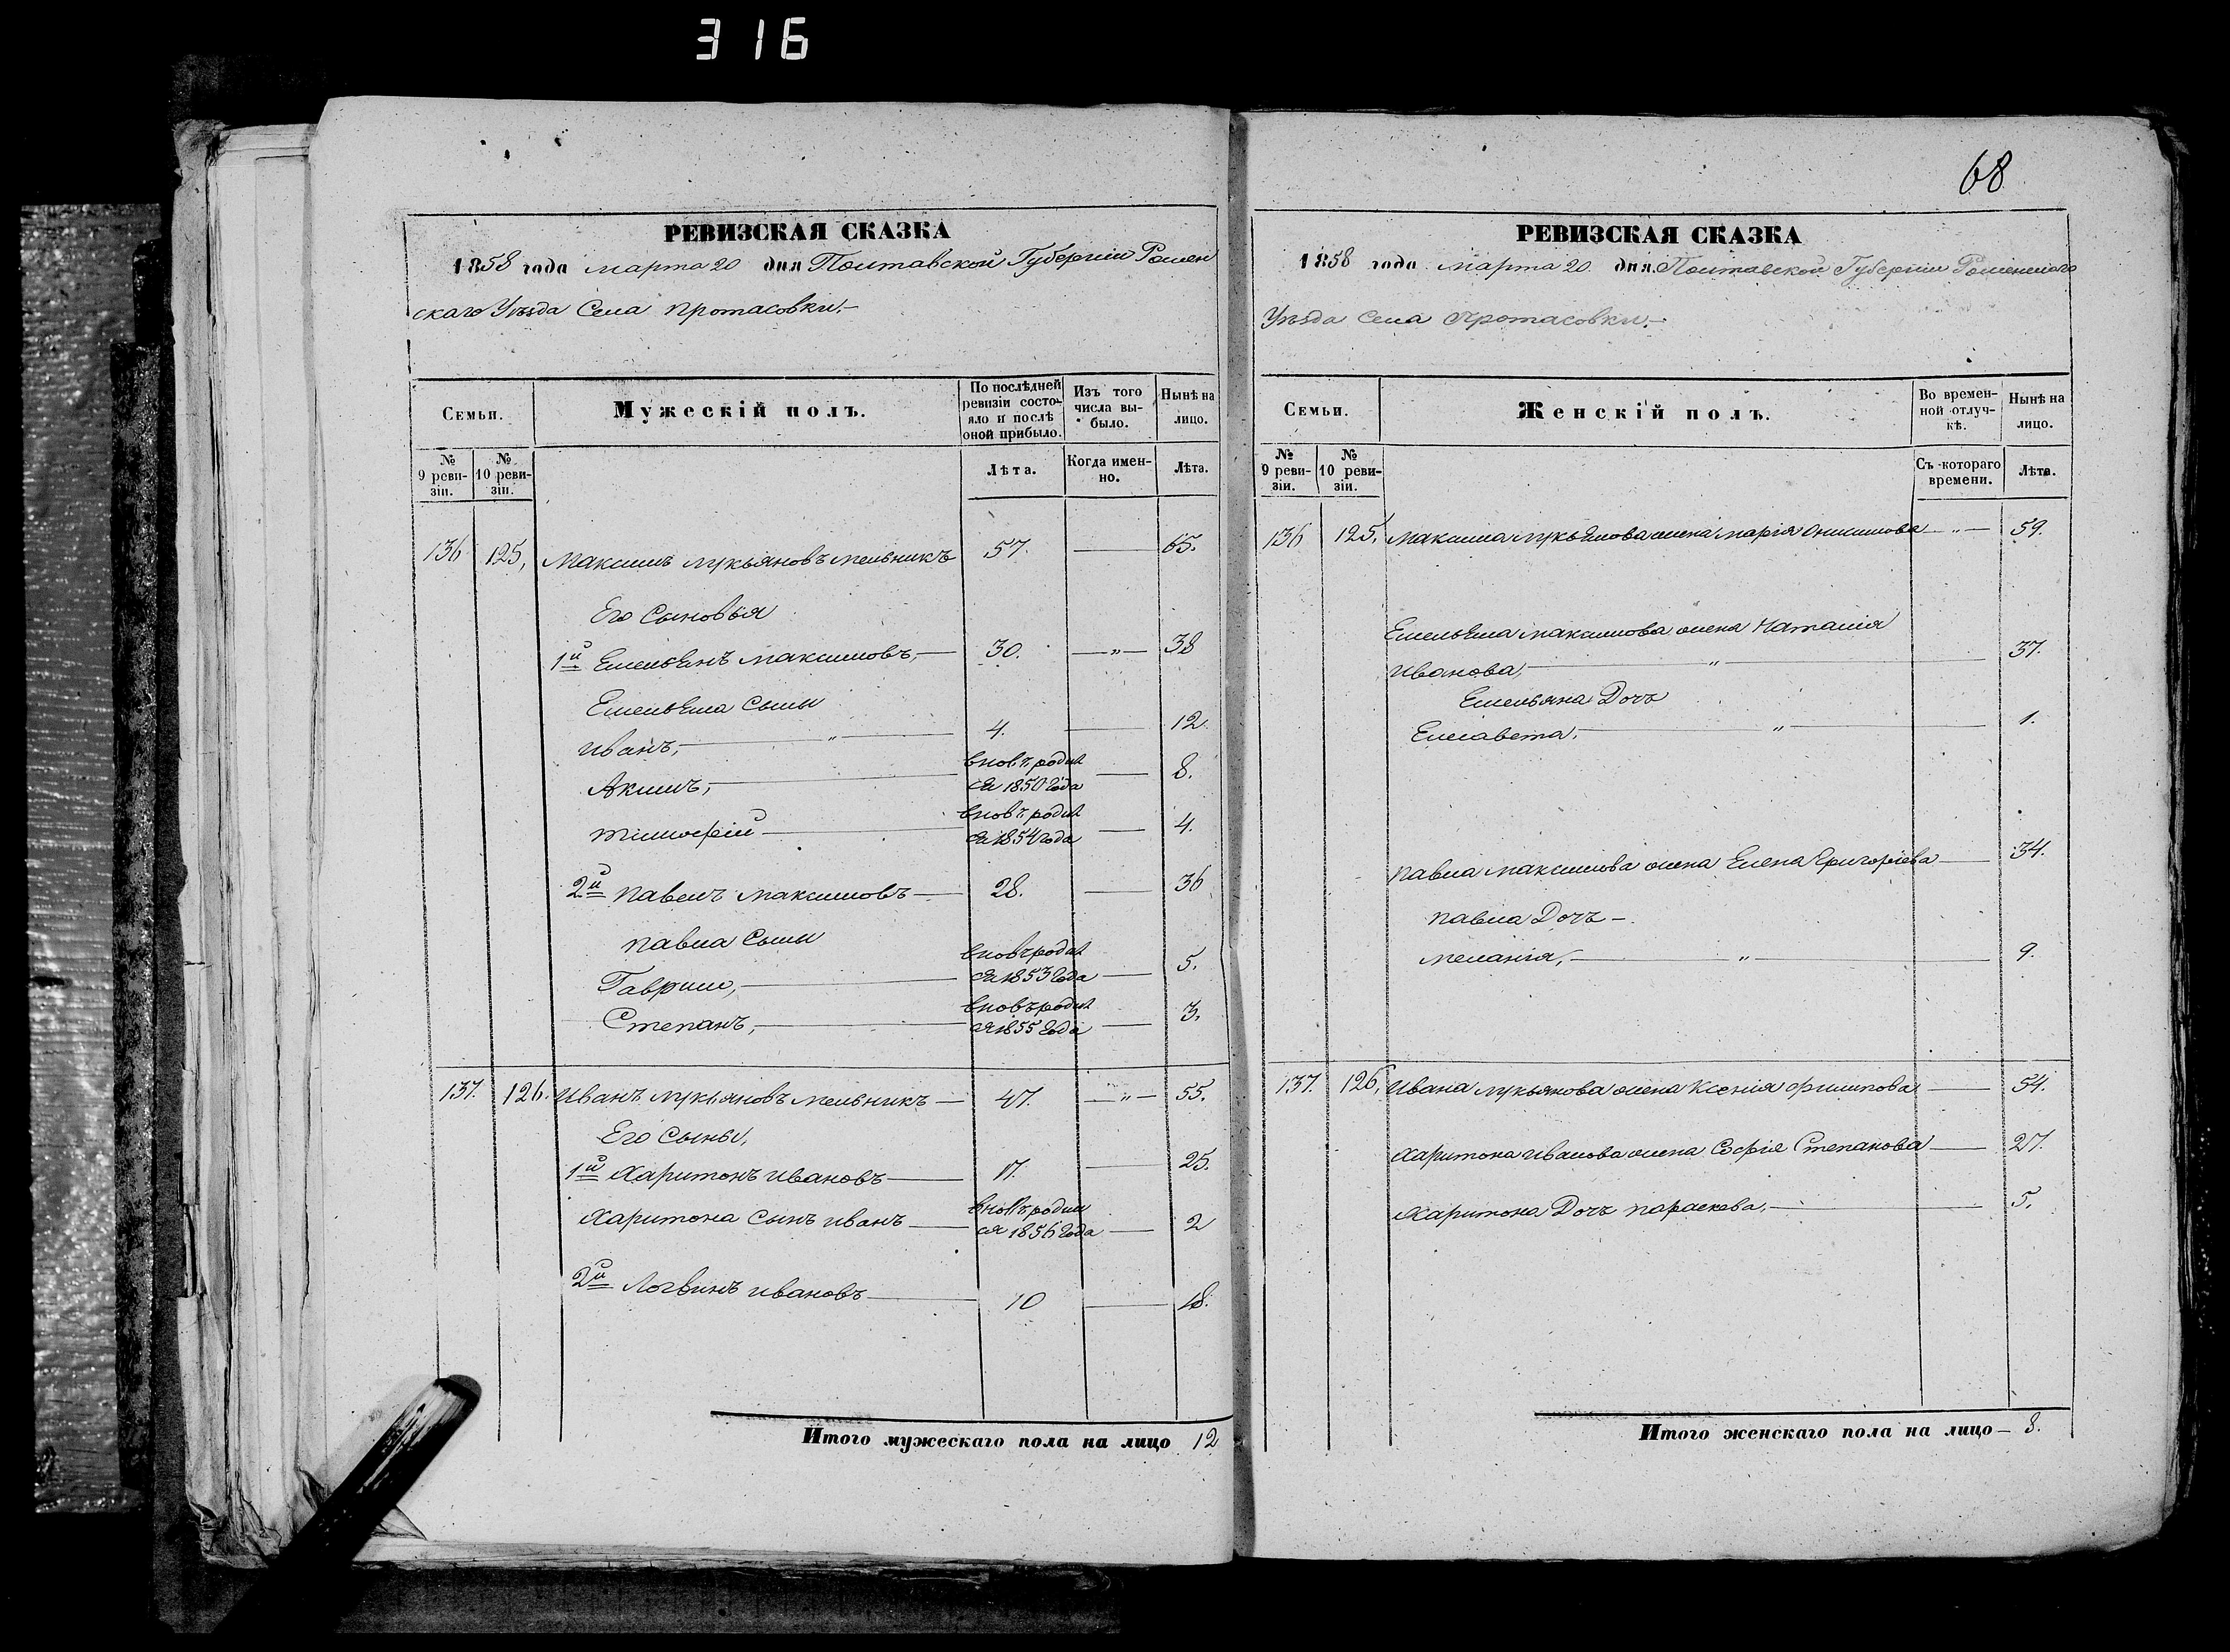 316
РЕВИЗСКАЯ СКАЗКА
1858 года марта 20 дня Полтавской Губерніи Ромен
скаго Уѣзда Села Протасовки.
Семьи.
Мужескій полъ.
По послѣдней
ревизіи состо-
яло и послѣ
оной прибыло.
Изъ того
числа вы-
было.
Нынѣ на
лицо.
№
9 реви-
зіи.
№
10 реви-
зіи.
Лѣта.
Когда имен-
но.
Лѣта.
136 125, Максимъ Лукьяновъ Мельникъ 57. 65.
Его Сыновья
1й Емельянъ Максимовъ, 30. " 38
Емельяна Сыны
Иванъ, " 4. 12
Акимъ, вновь родил
ся 1850 года 8.
Тимофей вновь родил
ся 1854 года 4.
2й Павелъ Максимовъ 28. 36
Павла Сыны
Гаврило, вновь родил
ся 1853 года 5.
Степанъ, вновь родил
ся 1855 года 3.
137. 126. Иванъ Лукьяновъ Мельникъ 47. " 55.
Его Сыны,
1й Харитонъ Ивановъ 17. 25.
Харитона Сынъ Иванъ вновь родил
ся 1856 года 2
2й Логвинъ Ивановъ 10 18.
Итого мужескаго пола на лицо 12
68
РЕВИЗСКАЯ СКАЗКА
1858 года марта 20 дня Полтавской Губерніи Роменскаго
Уѣзда Села Протасовки.
Семьи.
Женскій полъ.
Во времен-
ной отлуч-
кѣ.
Нынѣ на
лицо.
№
9 реви-
зіи.
№
10 реви-
зіи.
Съ котораго
времени.
Лѣта.
136 125, Максима Лукьянова жена Марія Онисимова " 59.
Емельяна Максимова жена Наталія
Иванова, " 37.
Емельяна Дочь
Елисавета. " 1.
Павла Максимова жена Елена Григоріева 34.
Павла Дочь
Меланія, " 9.
137. 126, Ивана Лукьянова жена Ксенія Филипова 54.
Харитона Иванова жена Софія Степанова 27.
Харитона Дочь Параскева, 5.
Итого женскаго пола на лицо 8.